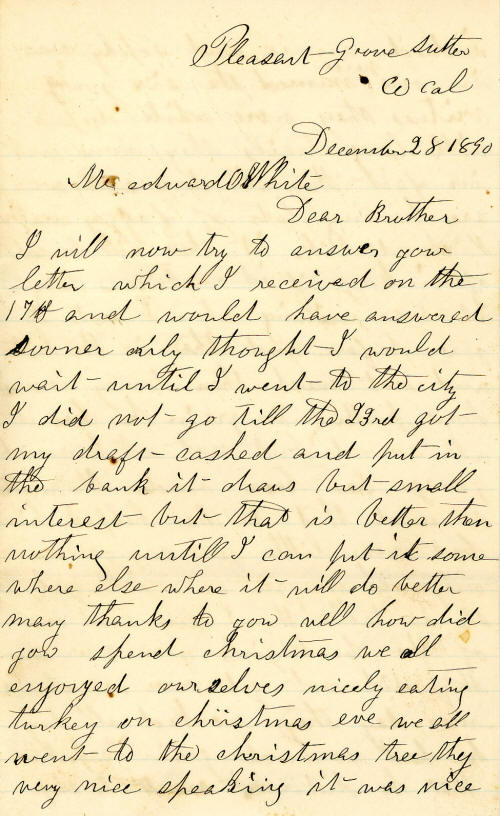 Pleasant Grove Sutter
Co Cal
December 28 1890
Mr edward White
Dear Brother
I will now try to answer your
letter which I received on the
17th and would have answered
sooner only thought I would
wait until I went to the city
I did not go till the 23rd got
my draft cashed and put in
the bank it draws but small
interest but that is better then
nothing until I can put it some
where else where it will do better
many thanks to you well how did
you spend christmas we all
enjoyed ourselves nicely eating
turkey on christmas eve we all
went to the christmas tree they
very nice speaking it was nice